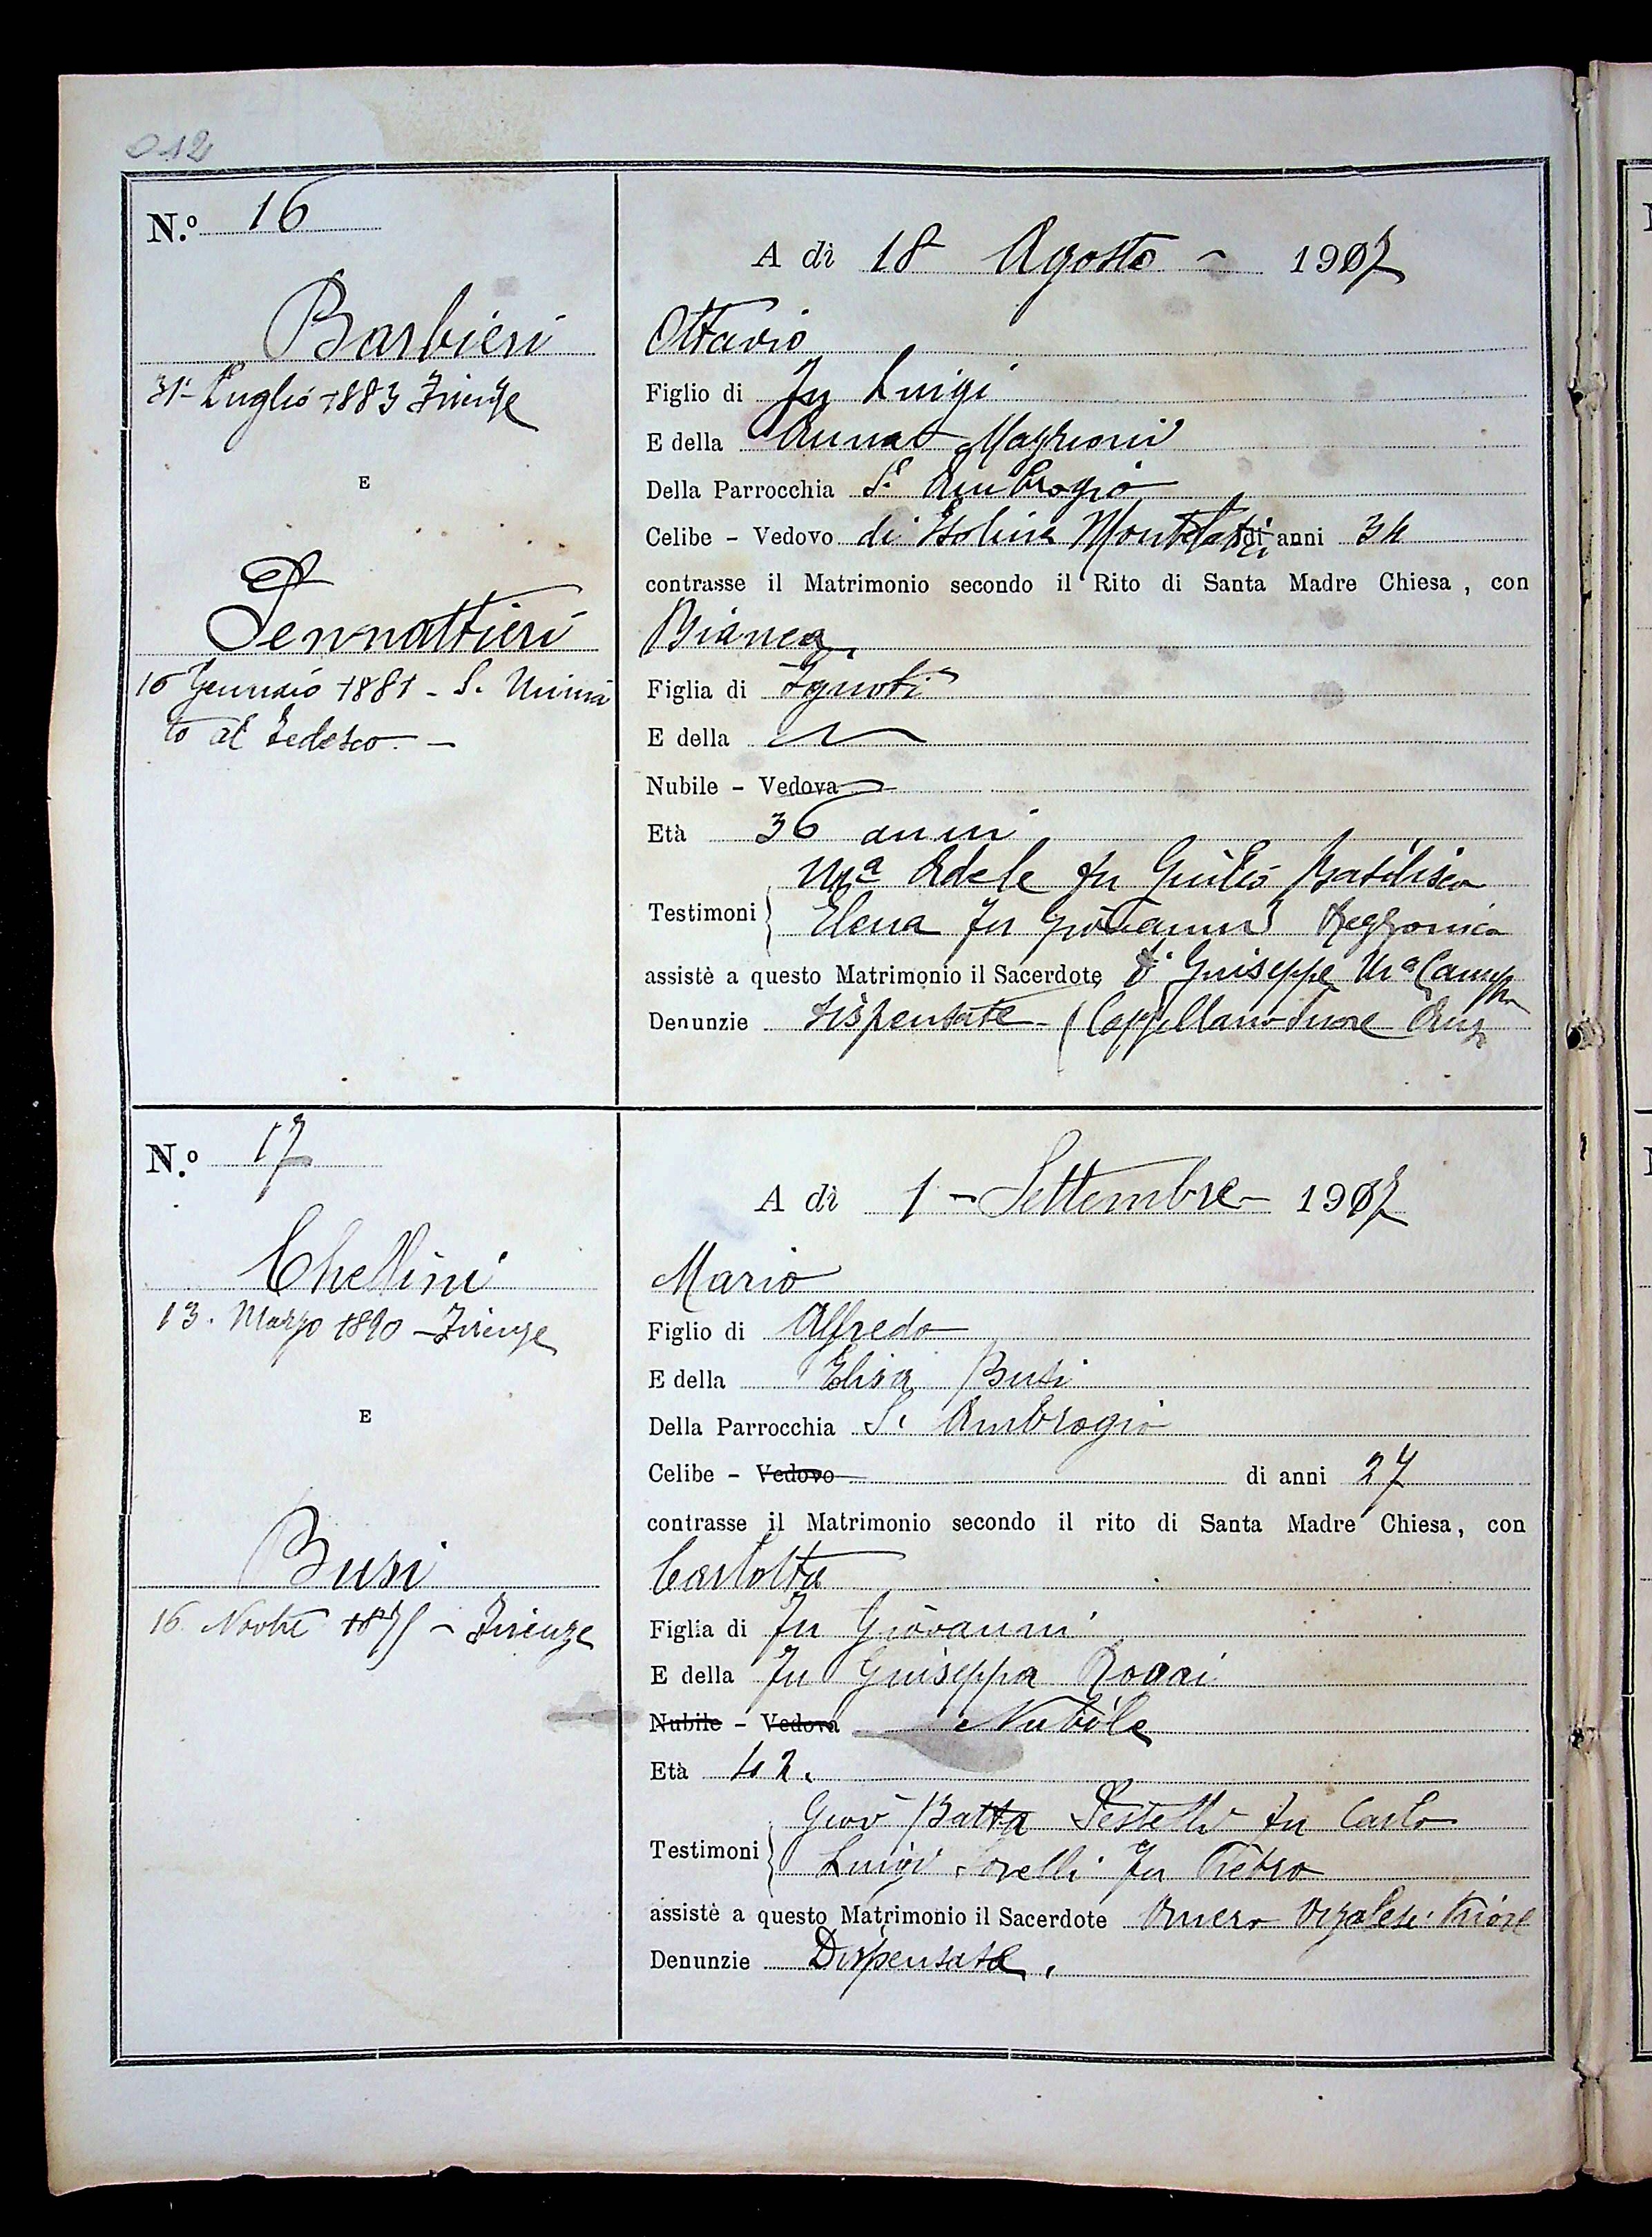 012
N.º 16
Barbieri
31 - Luglio 1883 Firenze
E
Pennattieri
16 Gennaio 1881 - S. Minia
to al Tedesco. -
A dì 18 Agosto - 1917
Ottavio
Figlio di Fu Luigi
E della Anna Magrioni
Della Parrocchia S. Ambrogio
Celibe - Vedovo di Isolina Montelatici di anni 34
contrasse il Matrimonio secondo il Rito di Santa Madre Chiesa, con
Bianca
Figlia di Ignoti
E della
Nubile - Vedova
Età 36 anni
Testimoni Mª Adele fu Giulio Basilisca
Elena fu Giovanni
assistè a questo Matrimonio il Sacerdote D. Giuseppe Mª
Denunzie dispensate - (Cappellano Suore
N.º 17
Chellini
13. Marzo 1890 - Firenze
E
Busi
16 Novbre 1875 - Firenze
A dì 1 - Settembre - 1917
Mario
Figlio di Alfredo
E della Elisa Busi
Della Parrocchia S. Ambrogio
Celibe - Vedovo di anni 27
contrasse il Matrimonio secondo il rito di Santa Madre Chiesa, con
Carlotta
Figlia di Fu Giovanni
E della Fu Giuseppa Rossi
Nubile - Vedova Nubile
Età 42.
Testimoni Giov Batta Pestelli fu Carlo
Luigi fu Pietro
assistè a questo Matrimonio il Sacerdote Omero Priore
Denunzie Dispensate.